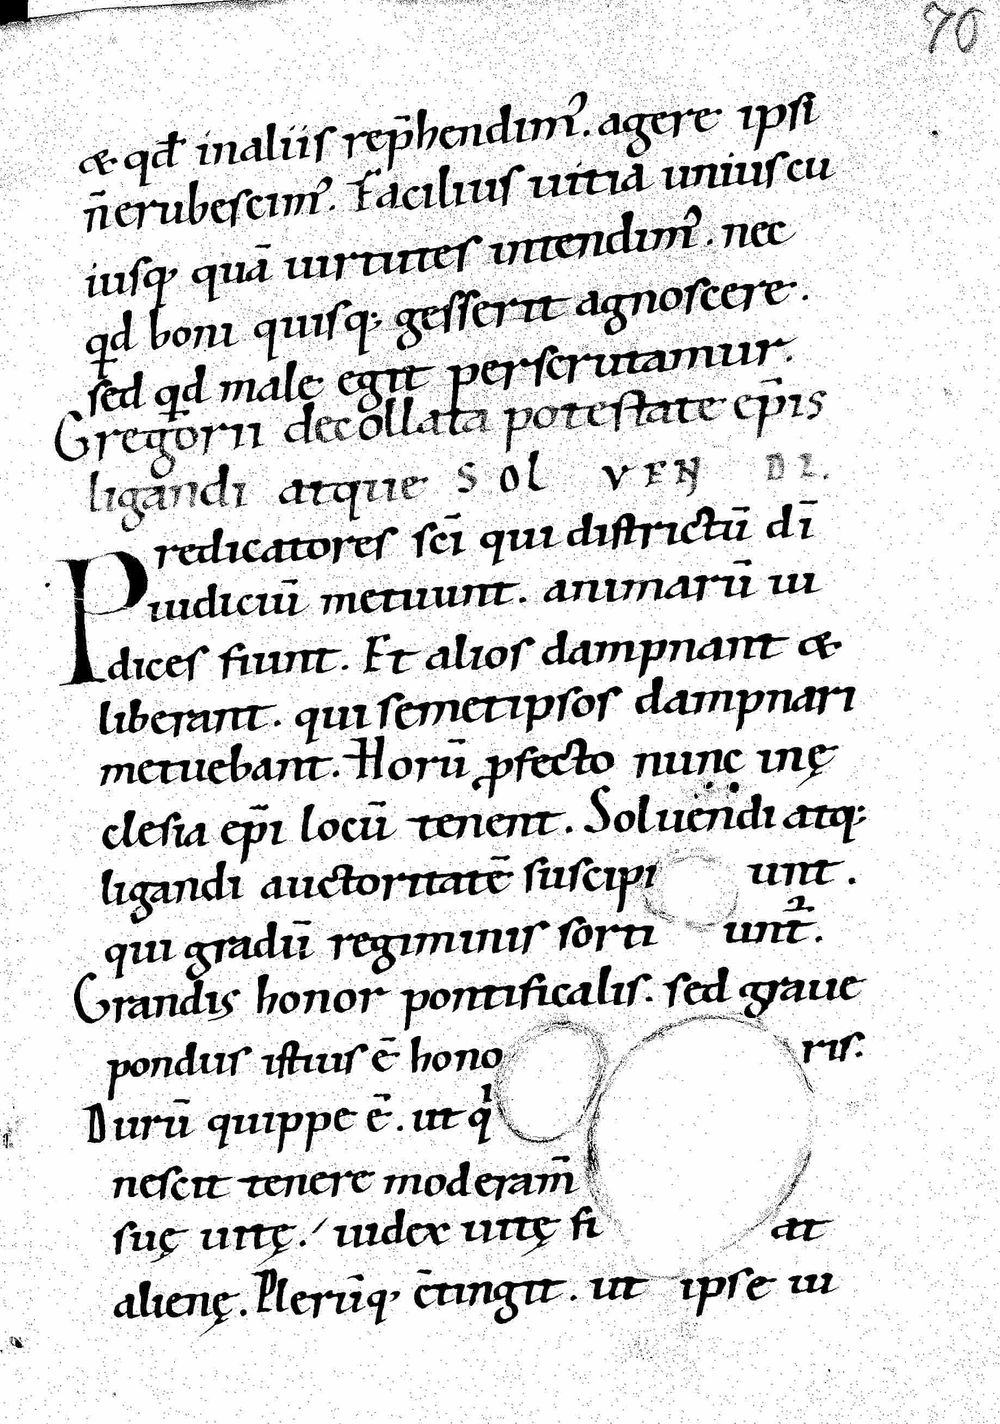 70
& qđ inaliis rep̄hendimꝰ. agere ipsi
n̄erubescimꝰ. Facilius uitia uniuscu
iusq; quā uirtutes intendimꝰ. nec
qd boni quisq; gesserit agnoscere.
sed qd male egit perscrutamur.
Gregorii decollata potestate ep̄is
ligandi atque SOLVENDI.
Predicatores sc̄i qui districtū dī
iudiciū metuunt. animarū iu
dices fiunt. Et alios dampnant &
liberant. qui semetipsos dampnari
metuebant. Horū ꝓfecto nunc inę
clesia ep̄i locū tenent. Soluendi atq;
ligandi auctoritatē suscipiunt.
qui gradū regiminis sortiunt᷑.
Grandis honor pontificalis. sed graue
pondus istius ē honoris.
Durū quippe ē. ut qi
nescit tenere moderam̄
suę uitę. iudex uitę fiat
alienę. Plerūq; c̄tingit. ut ipse iu